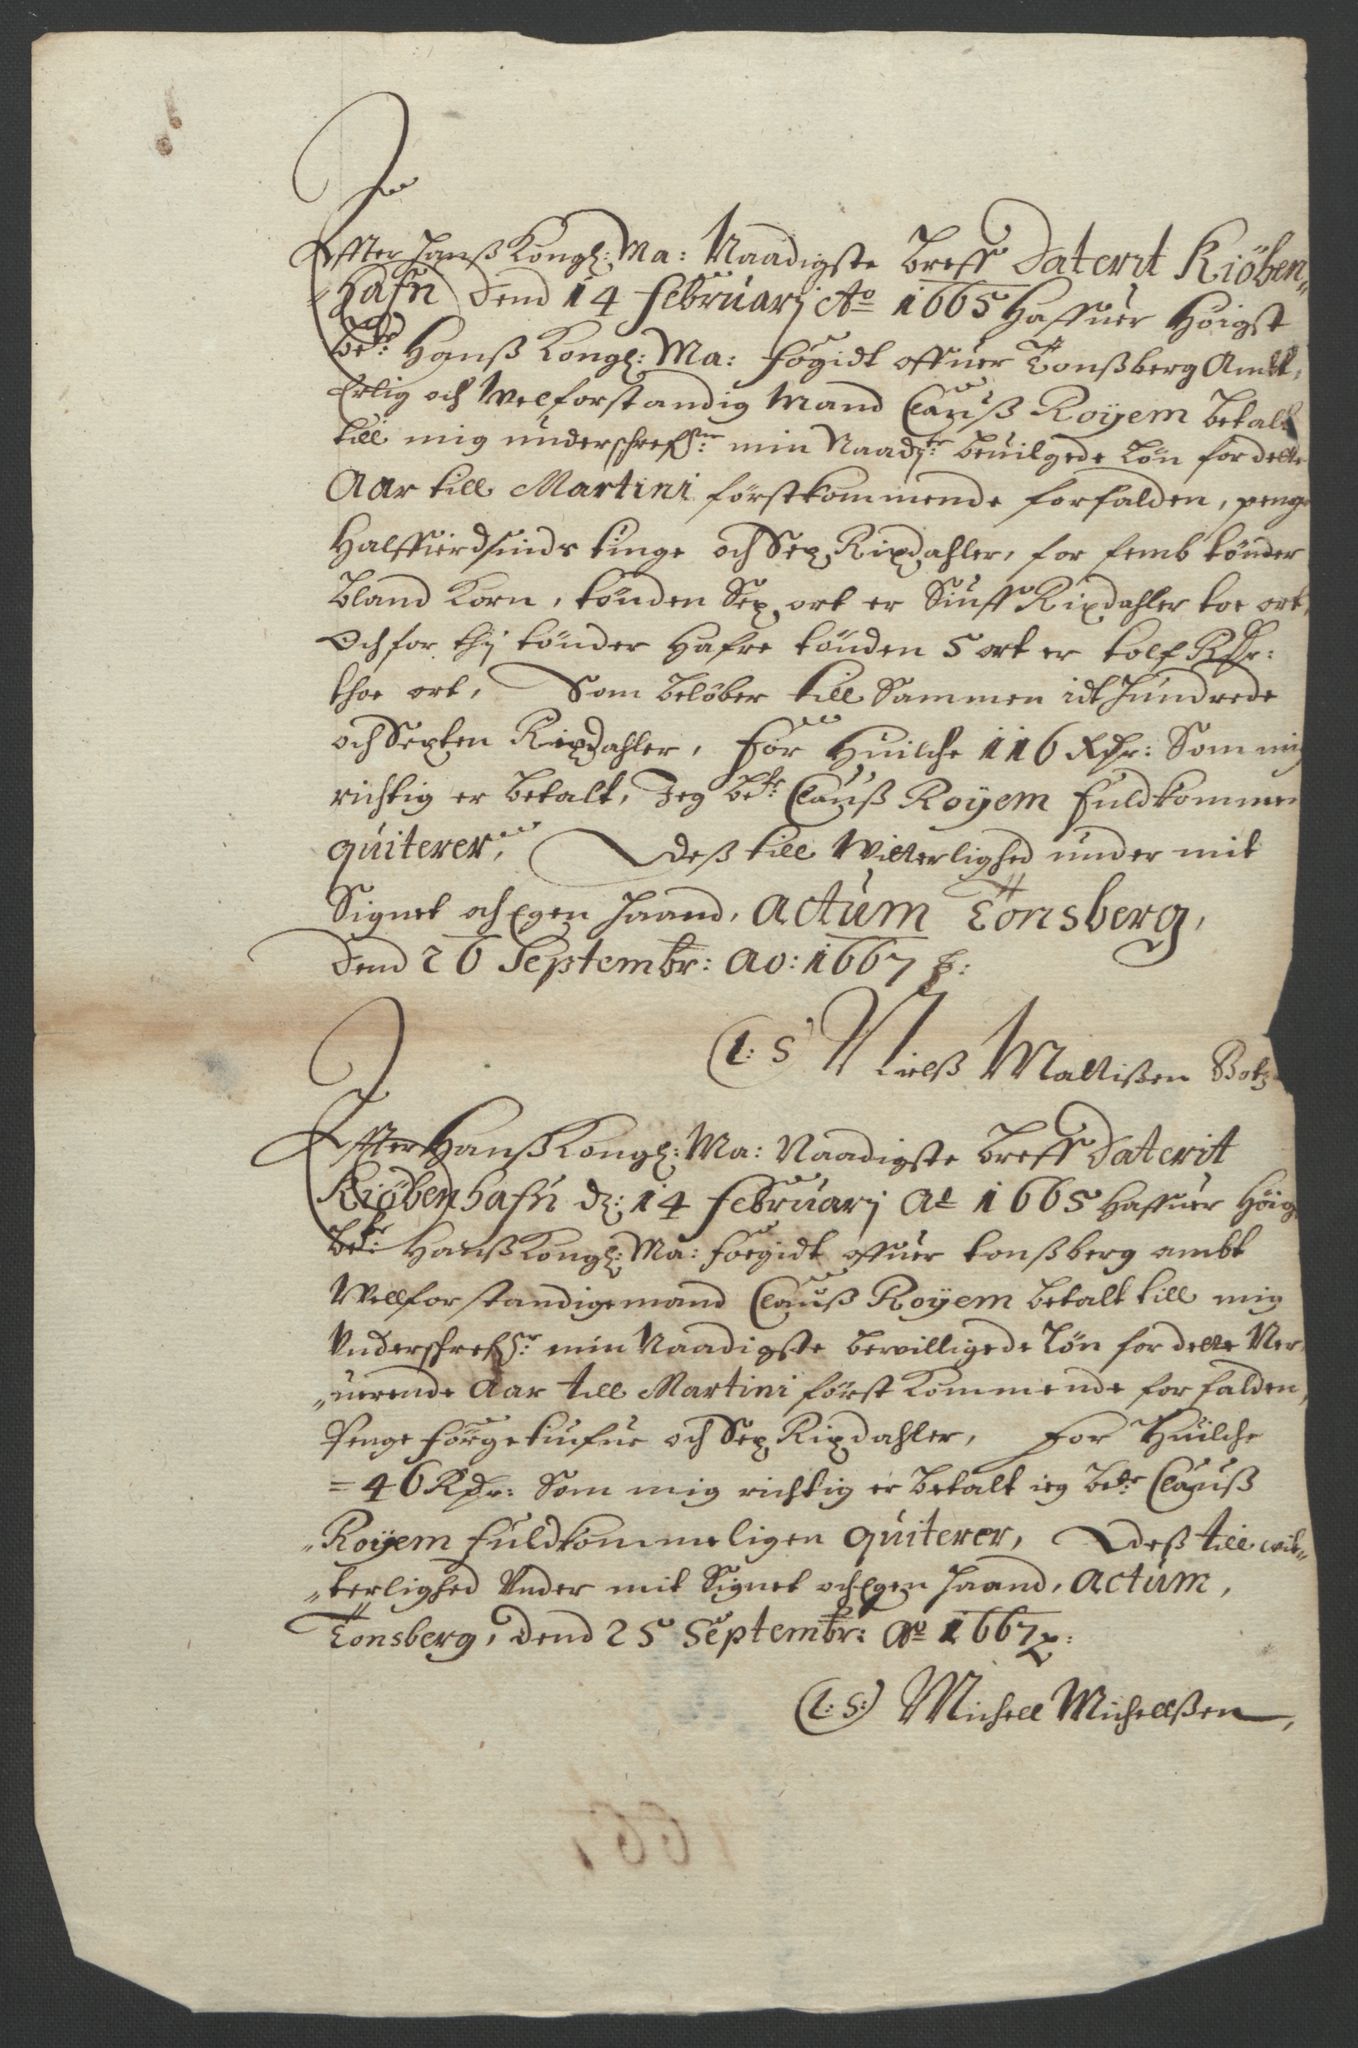 Effter Hanß Kongl: Ma: Naadigste breff Daterit Kiöben„
„hafn dend 14 februarj Ao 1665 Haffuer Höigst
betr: Hanß Kongl: Ma: fögidt offuer Tonßberg Ambt,
Erlig och Welforstandig Mand Clauß Roÿem betalt
till mig underschreffn: min Naadste beuilgede Løn for dette
Aar till Martini förstkommende forfalden, penge
Halffierdsinds tiuge och Sex Rixdahler, for femb tönder
bland Korn, tönden Sex ort er Siuff Rixdahler toe ort,
Och for thj tönder Hafre tönden 5 ort er tolf Rdr:
thoe ort, Som belöber till Sammen idt Hundrede
och Sexten Rixdahler, for Huilche 116 Rdr: Som mig
richtig er betalt, Jeg betr: Clauß Roÿem fuldkommen
quiterer, Deß till Witterlighed under mit
Signet och Egen Haand, Actum Tönsberg,
Dend 26 Septembr: Ao: 1667
(L: S) Nielß Mattißen
Effter Hanß Kongl: Ma: Naadigste breff Daterit
Kiöbenhafn d: 14 februarj Ao 1665 Haffuer Höig
betr: Hanß Kongl: Ma: foegidt offuer tonßberg ambt
Wellforstandige mand Clauß Roÿem betalt till mig
Underschreffn: min Naadigste bewilligede Løn for dette Ner„
„uerende Aar till Martini först Kommende forfalden,
Penge förgetiufue och Sex Rixdahler, for Huilche
=46 Rdr: Som mig richtig er betalt ieg betr: Clauß
„Roÿem fuldkommeligen quiterer, Deß till wit„
„terlighed Under mit Signet och Egen Haand, Actum,
Tonsberg, dend 25 Septembr: Ao 1667
(L: S:) Michell Michellßen,